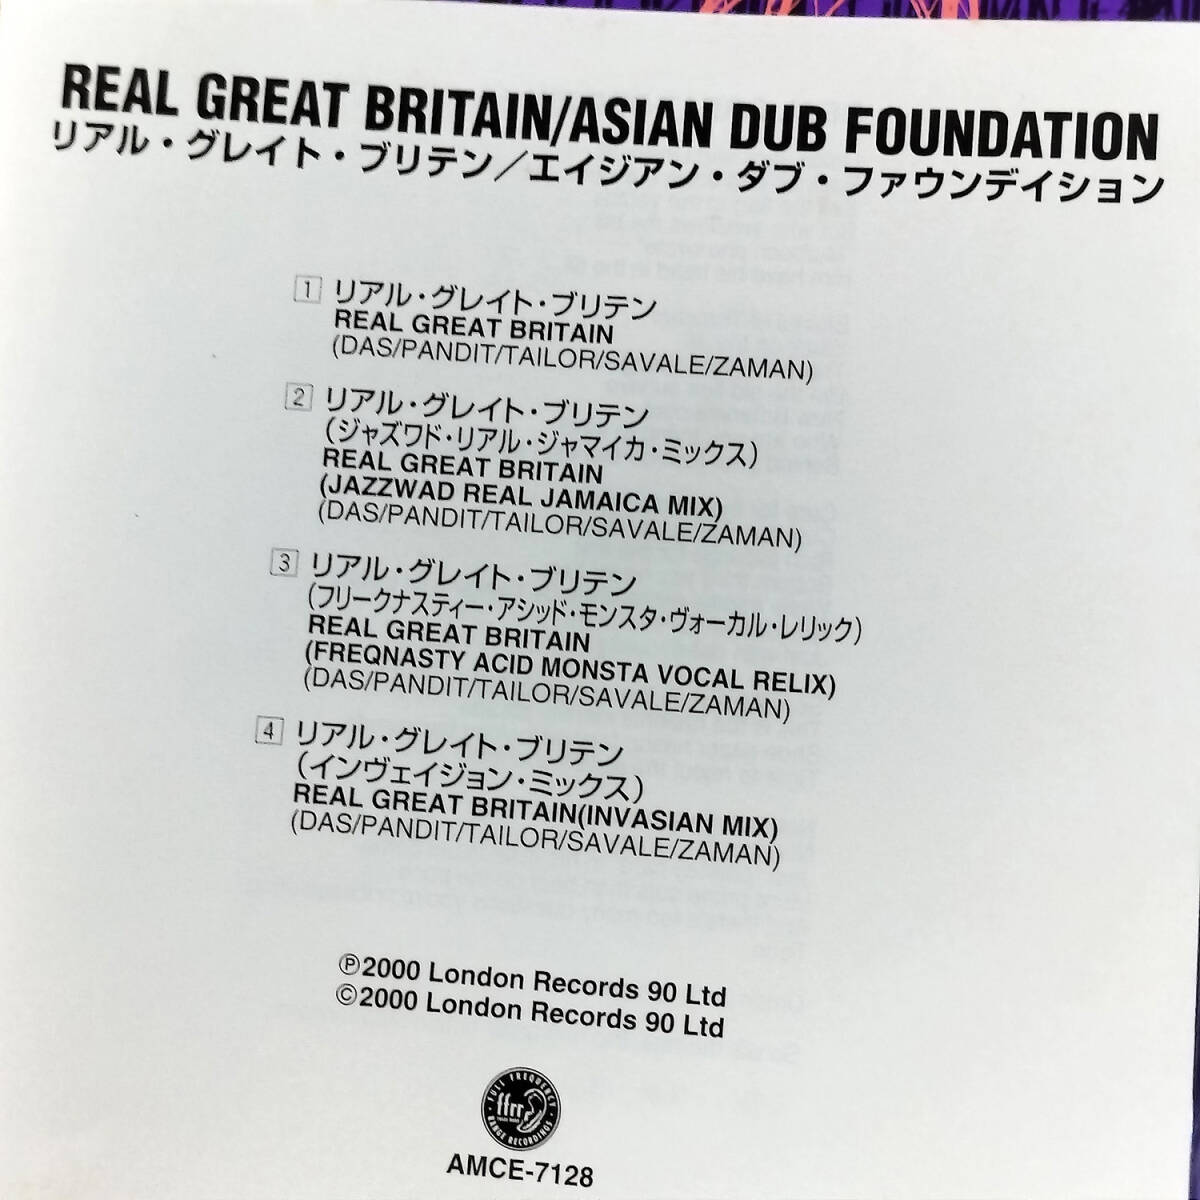 REAL GREAT BRITAIN/ASIAN DUB FOUNDATION
リアル・グレイト・ブリテン/エイジアン・ダブ・ファウンデイション
1 リアル・グレイト・ブリテン
REAL GREAT BRITAIN
(DAS/PANDIT/TAILOR/SAVALE/ZAMAN)
2 リアル・グレイト・ブリテン
(ジャズワド・リアル・ジャマイカ・ミックス)
REAL GREAT BRITAIN
(JAZZWAD REAL JAMAICA MIX)
(DAS/PANDIT/TAILOR/SAVALE/ZAMAN)
3 リアル・グレイト・ブリテン
(フリークナスティー・アシッド・モンスタ・ヴォーカル・レリック)
REAL GREAT BRITAIN
(FREQNASTY ACID MONSTA VOCAL RELIX)
(DAS/PANDIT/TAILOR/SAVALE/ZAMAN)
4 リアル・グレイト・ブリテン
(インヴェイジョン・ミックス)
REAL GREAT BRITAIN(INVASIAN MIX)
(DAS/PANDIT/TAILOR/SAVALE/ZAMAN)
℗2000 London Records 90 Ltd
©2000 London Records 90 Ltd
FULL FREQUENCY
ffrr
RANGE RECORDINGS
AMCE-7128